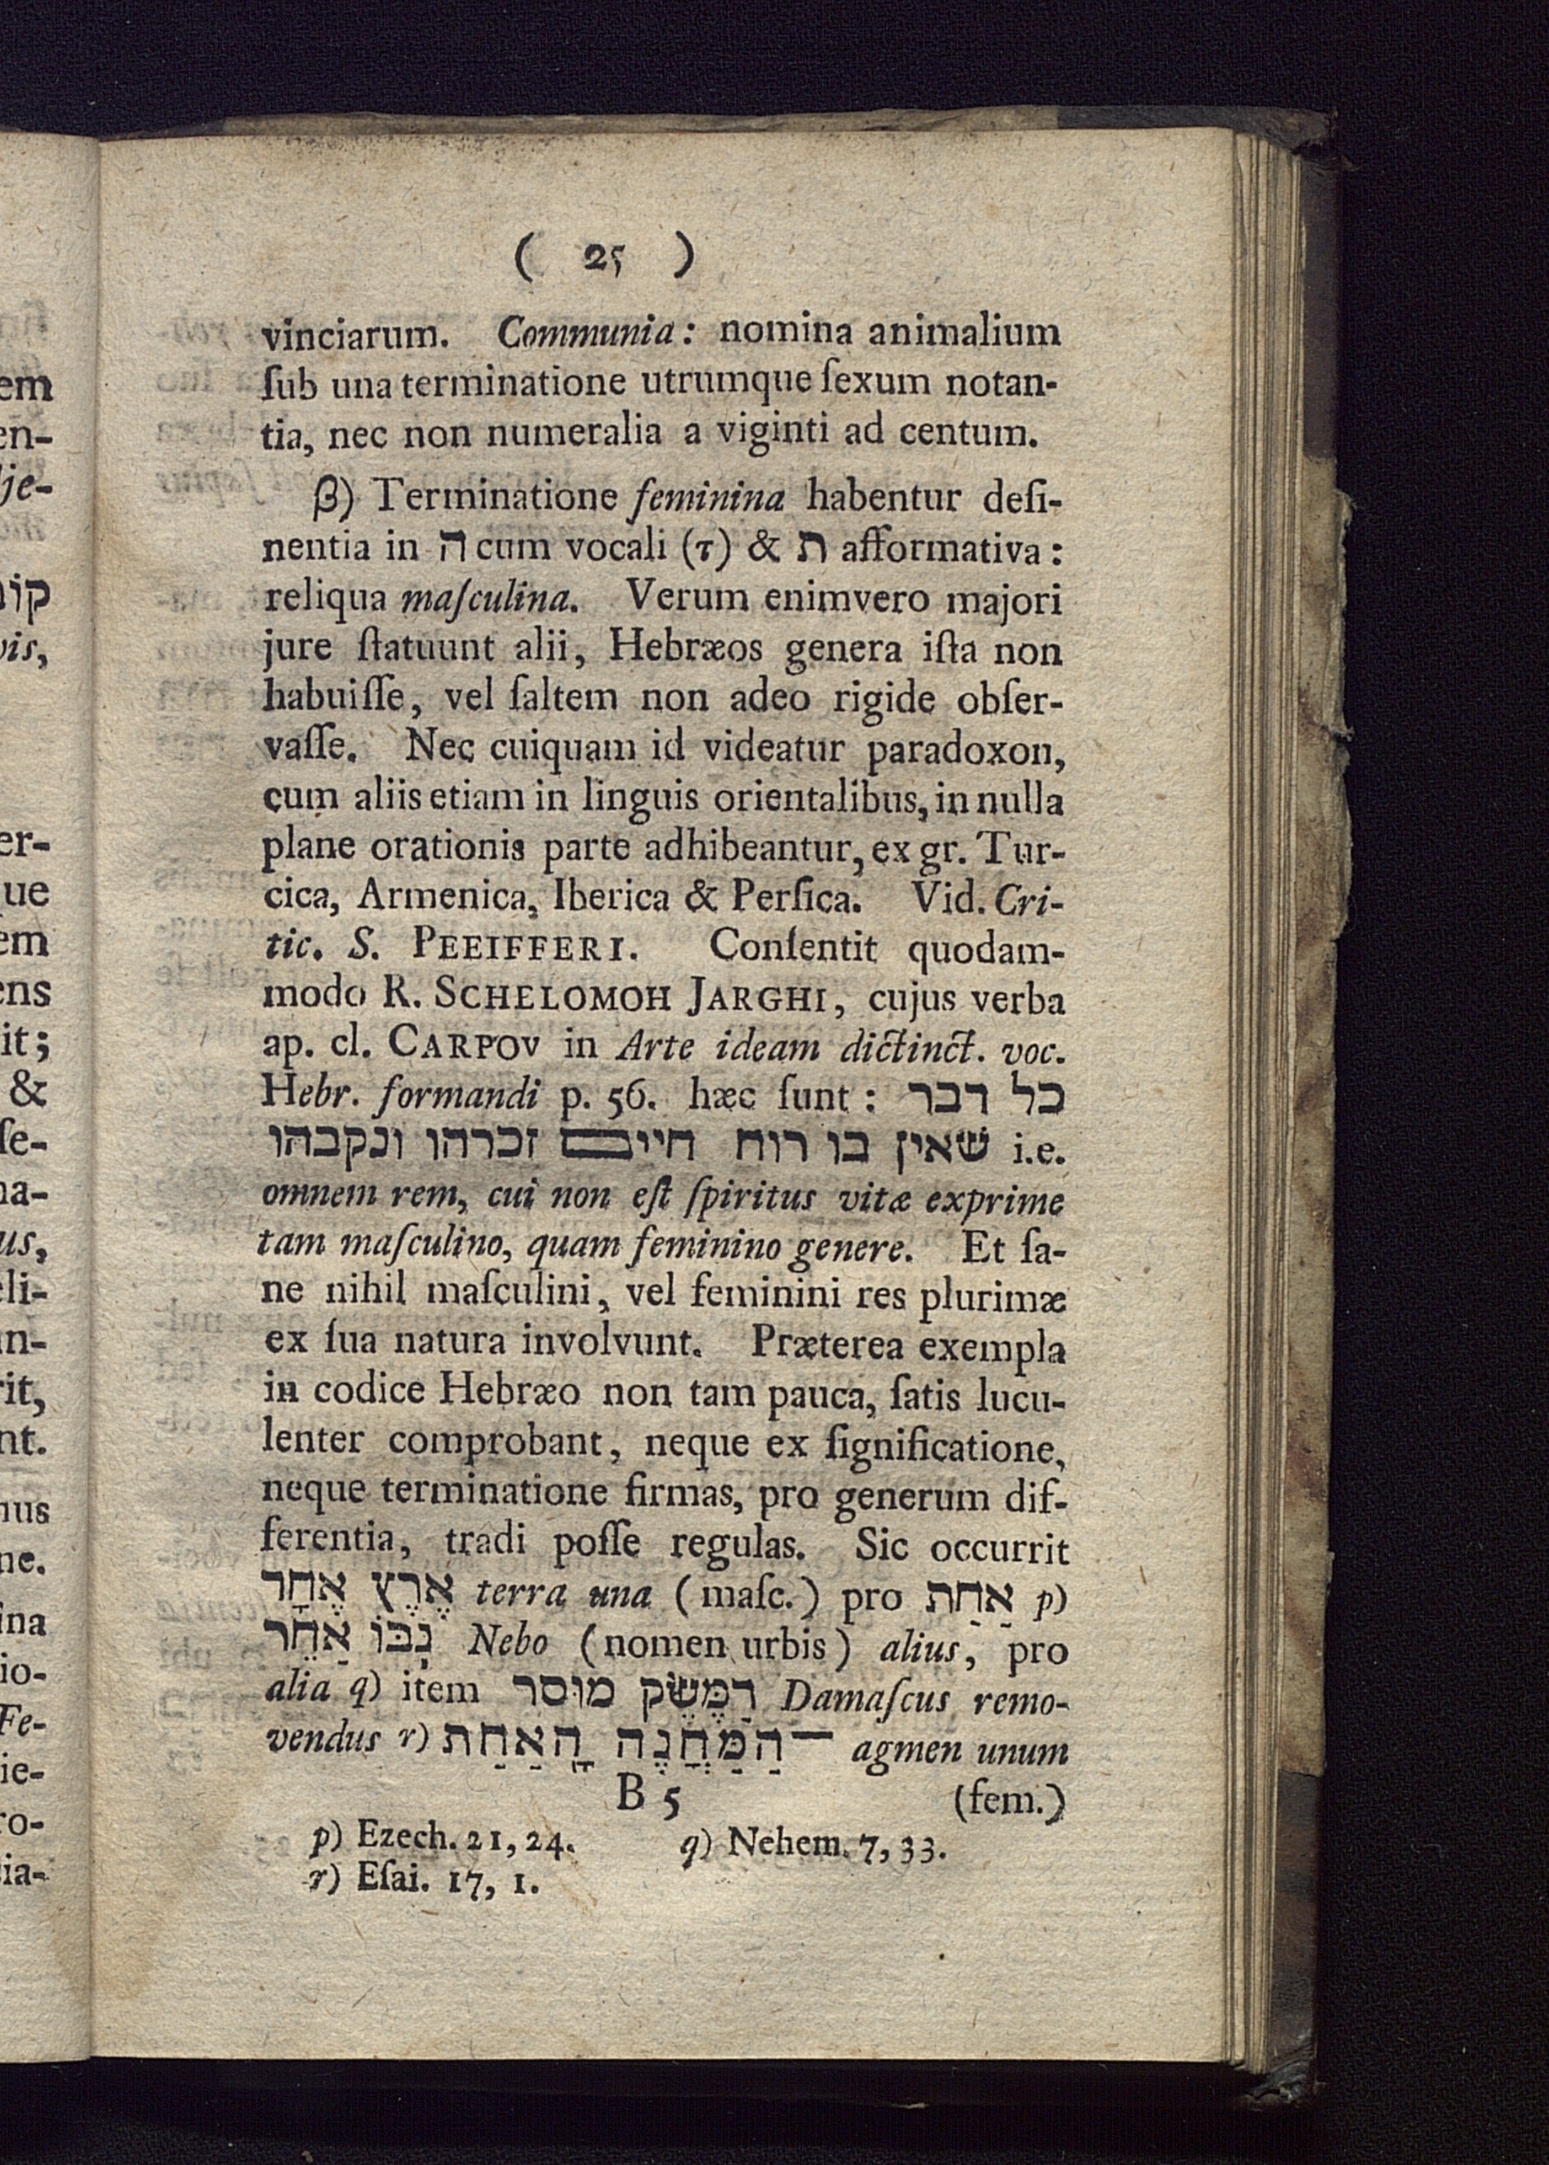 ( 25 )
vinciarum. Communia: nomina animalium
ſub una terminatione utrumque ſexum notan-
tia, nec non numeralia a viginti ad centum.
β) Terminatione feminina habentur deſi-
nentia in ה cum vocali (ד) & ת afformativa:
reliqua maſculina. Verum enimvero majori
jure ſtatuunt alii, Hebræos genera iſta non
habuiſſe, vel ſaltem non adeo rigide obſer-
vaſſe. Nec cuiquam id videatur paradoxon,
cum aliis etiam in linguis orientalibus, in nulla
plane orationis parte adhibeantur, ex gr. Tur-
cica, Armenica, Iberica & Perſica. Vid. Cri-
tic. S. PEEIFFERI. Conſentit quodam-
modo R. SCHELOMOH JARGHI, cujus verba
ap. cl. CARPOV in Arte ideam dictinct. voc.
Hebr. formandi p. 56. hæc ſunt: כל דבר
שׁאין בו רוח חיים זכרהו ונקבהו i.e.
omnem rem, cui non eſt ſpiritus vitæ exprime
tam maſculino, quam feminino genere. Et ſa-
ne nihil maſculini, vel feminini res plurimæ
ex ſua natura involvunt. Præterea exempla
in codice Hebræo non tam pauca, ſatis lucu-
lenter comprobant, neque ex ſignificatione,
neque terminatione firmas, pro generum dif-
ferentia, tradi poſſe regulas. Sic occurrit
אֶרֶץ אֶחָד terra una (maſc.) pro אַחַת p)
נְבּוֹ אַחֵר Nebo (nomen urbis) alius, pro
alia q) item דַמֶּשֶׂק מוּסר Damaſcus remo-
vendus r) הַמַּחֲנֶה הָאַחַת— agmen unum
B 5 (fem.)
p) Ezech. 21, 24. q) Nehem. 7, 33.
r) Eſai. 17, 1.